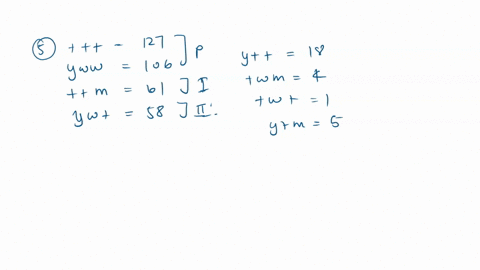 ⑤ +++ - 127 ] P
yww = 106
++m = 61 ] I
yw+ = 58 ] II.
y++ = 18
+wm = 4
+w+ = 1
y+m = 5